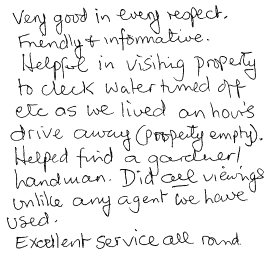 Very good in every respect.
Friendly & informative.
Helpful in visiting property
to check water turned off
etc as we lived an hours
drive away (property empty).
Helped find a gardener/
handman. Did all viewings
unlike any agent we have
used.
Excellent service all round